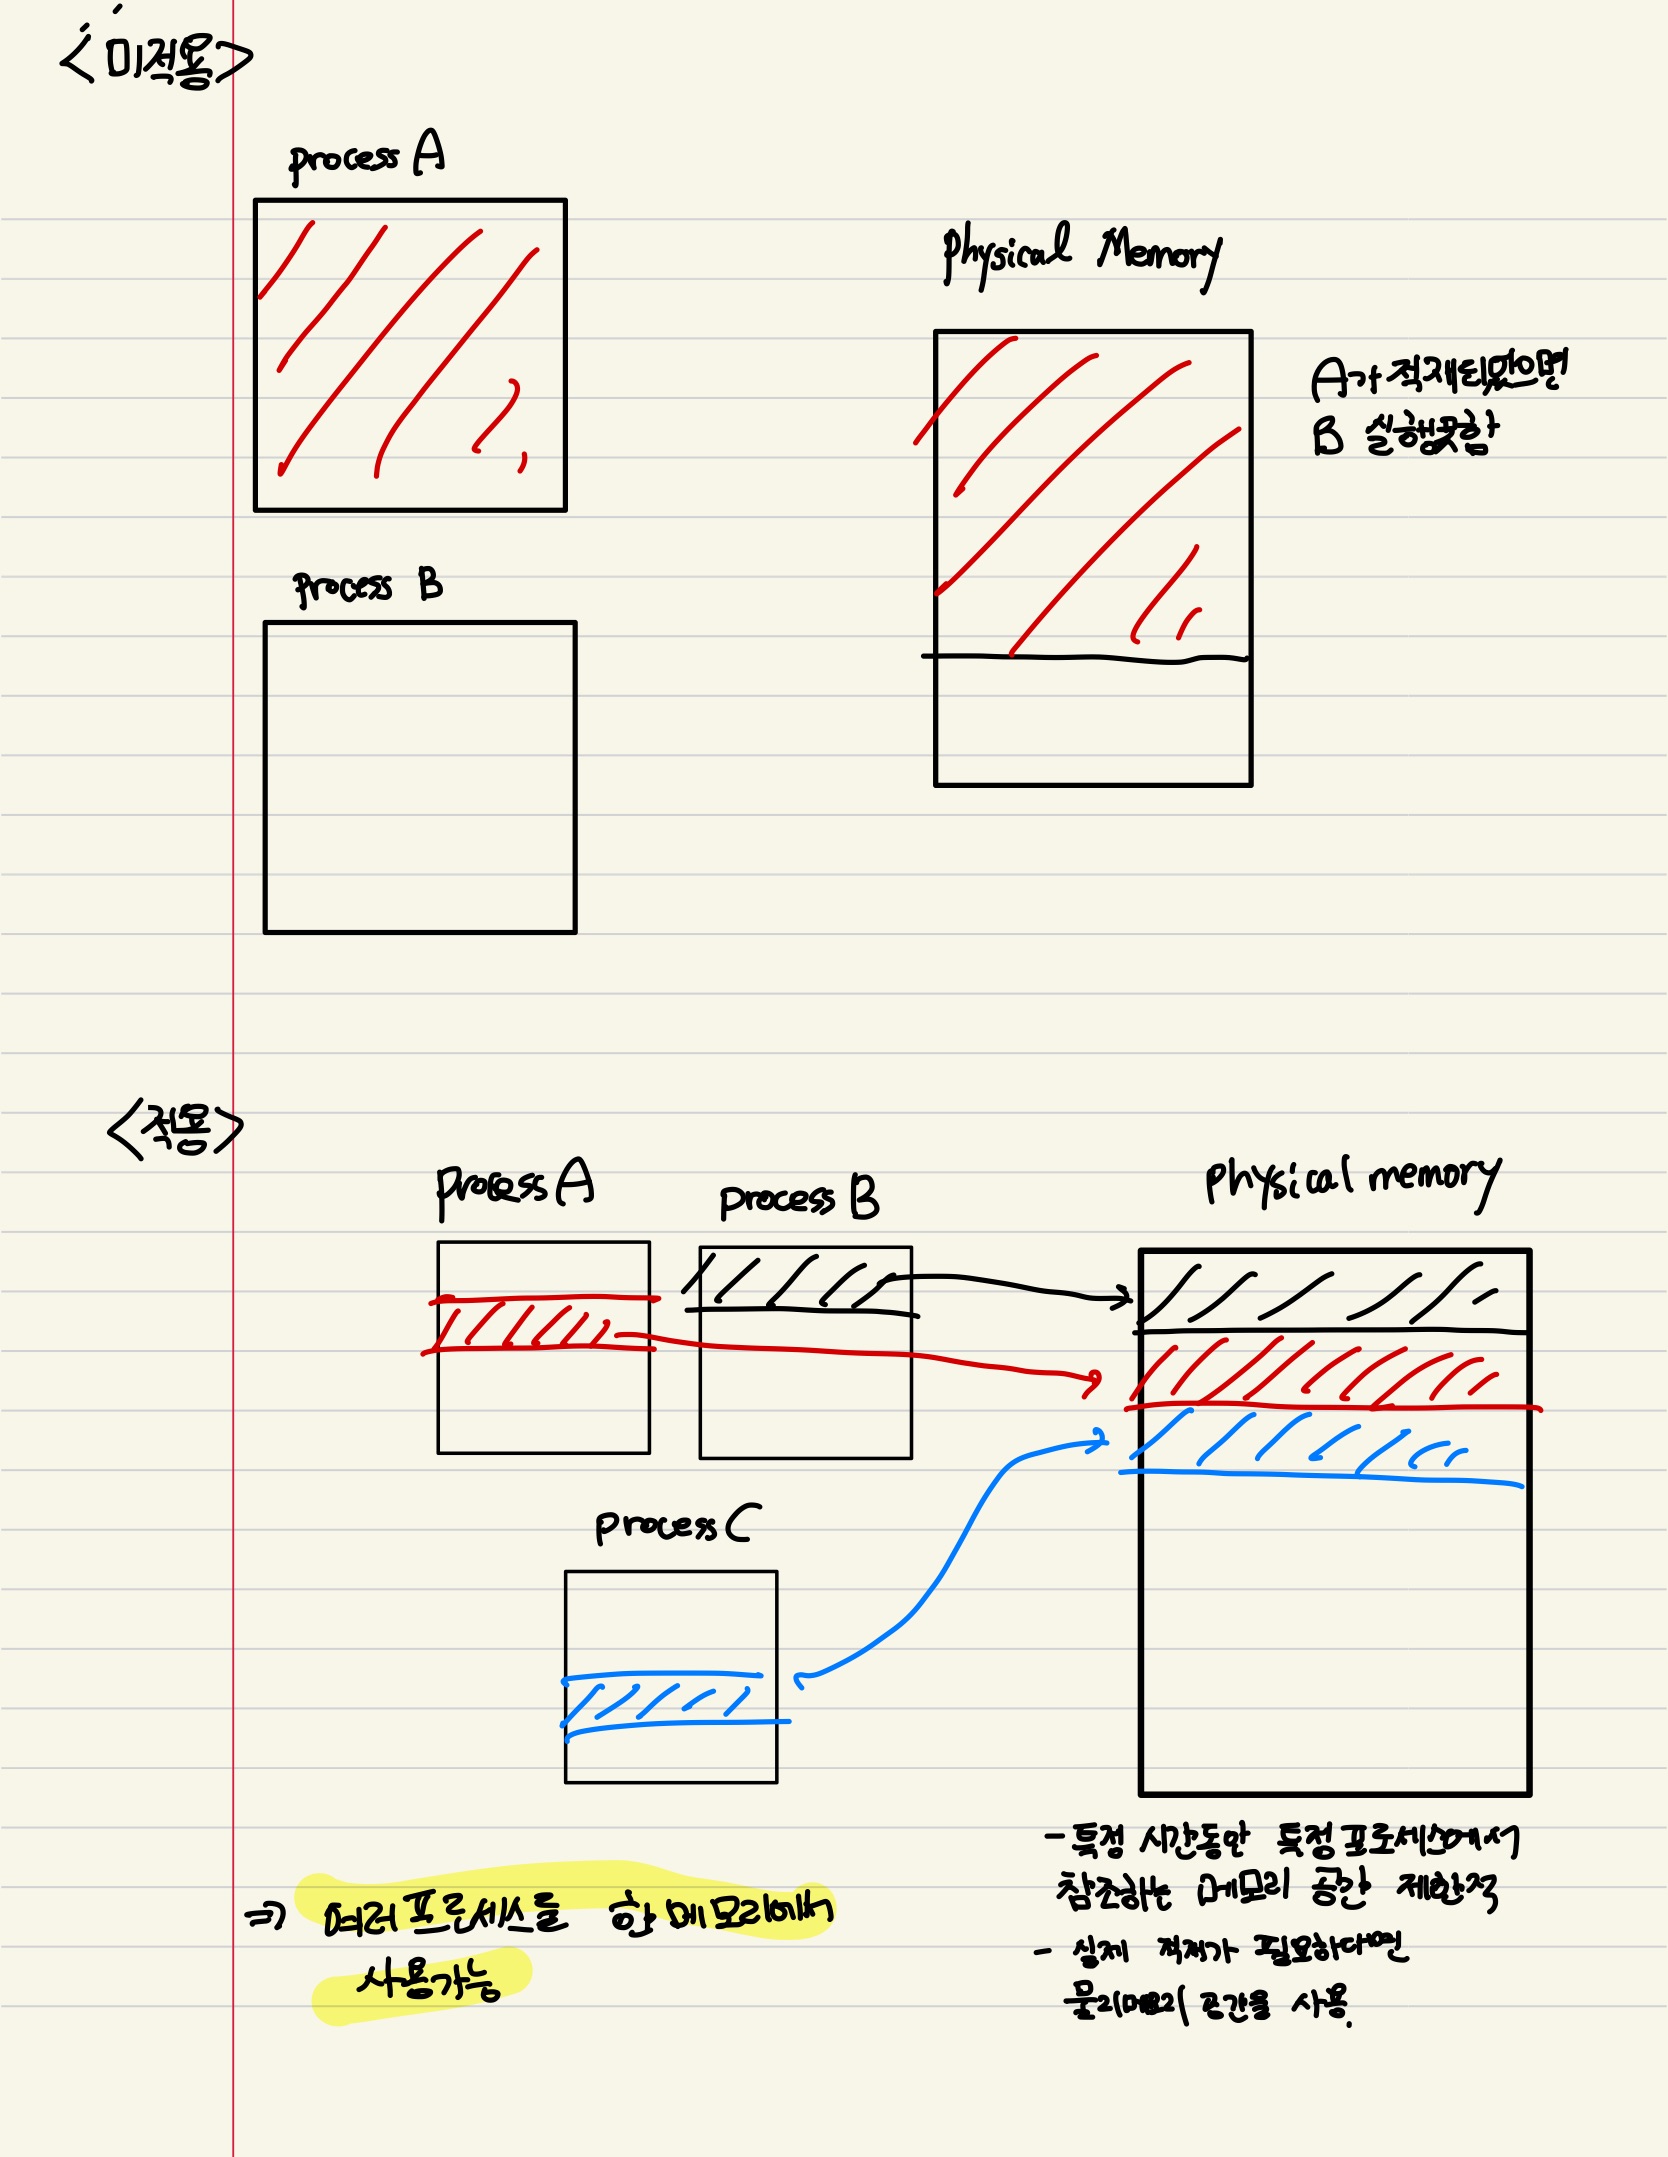 <미적용>
process A
Physical Memory
A가 적재되있으면
B 실행못함
Process B
<적용>
process A
process B
physical memory
process C
- 특정 시간동안 특정 프로세스에서
참조하는 메모리 공간 제한적
- 실제 적재가 필요하다면
물리메모리 공간을 사용.
⇒ 여러 프로세스를 한 메모리에서
사용가능